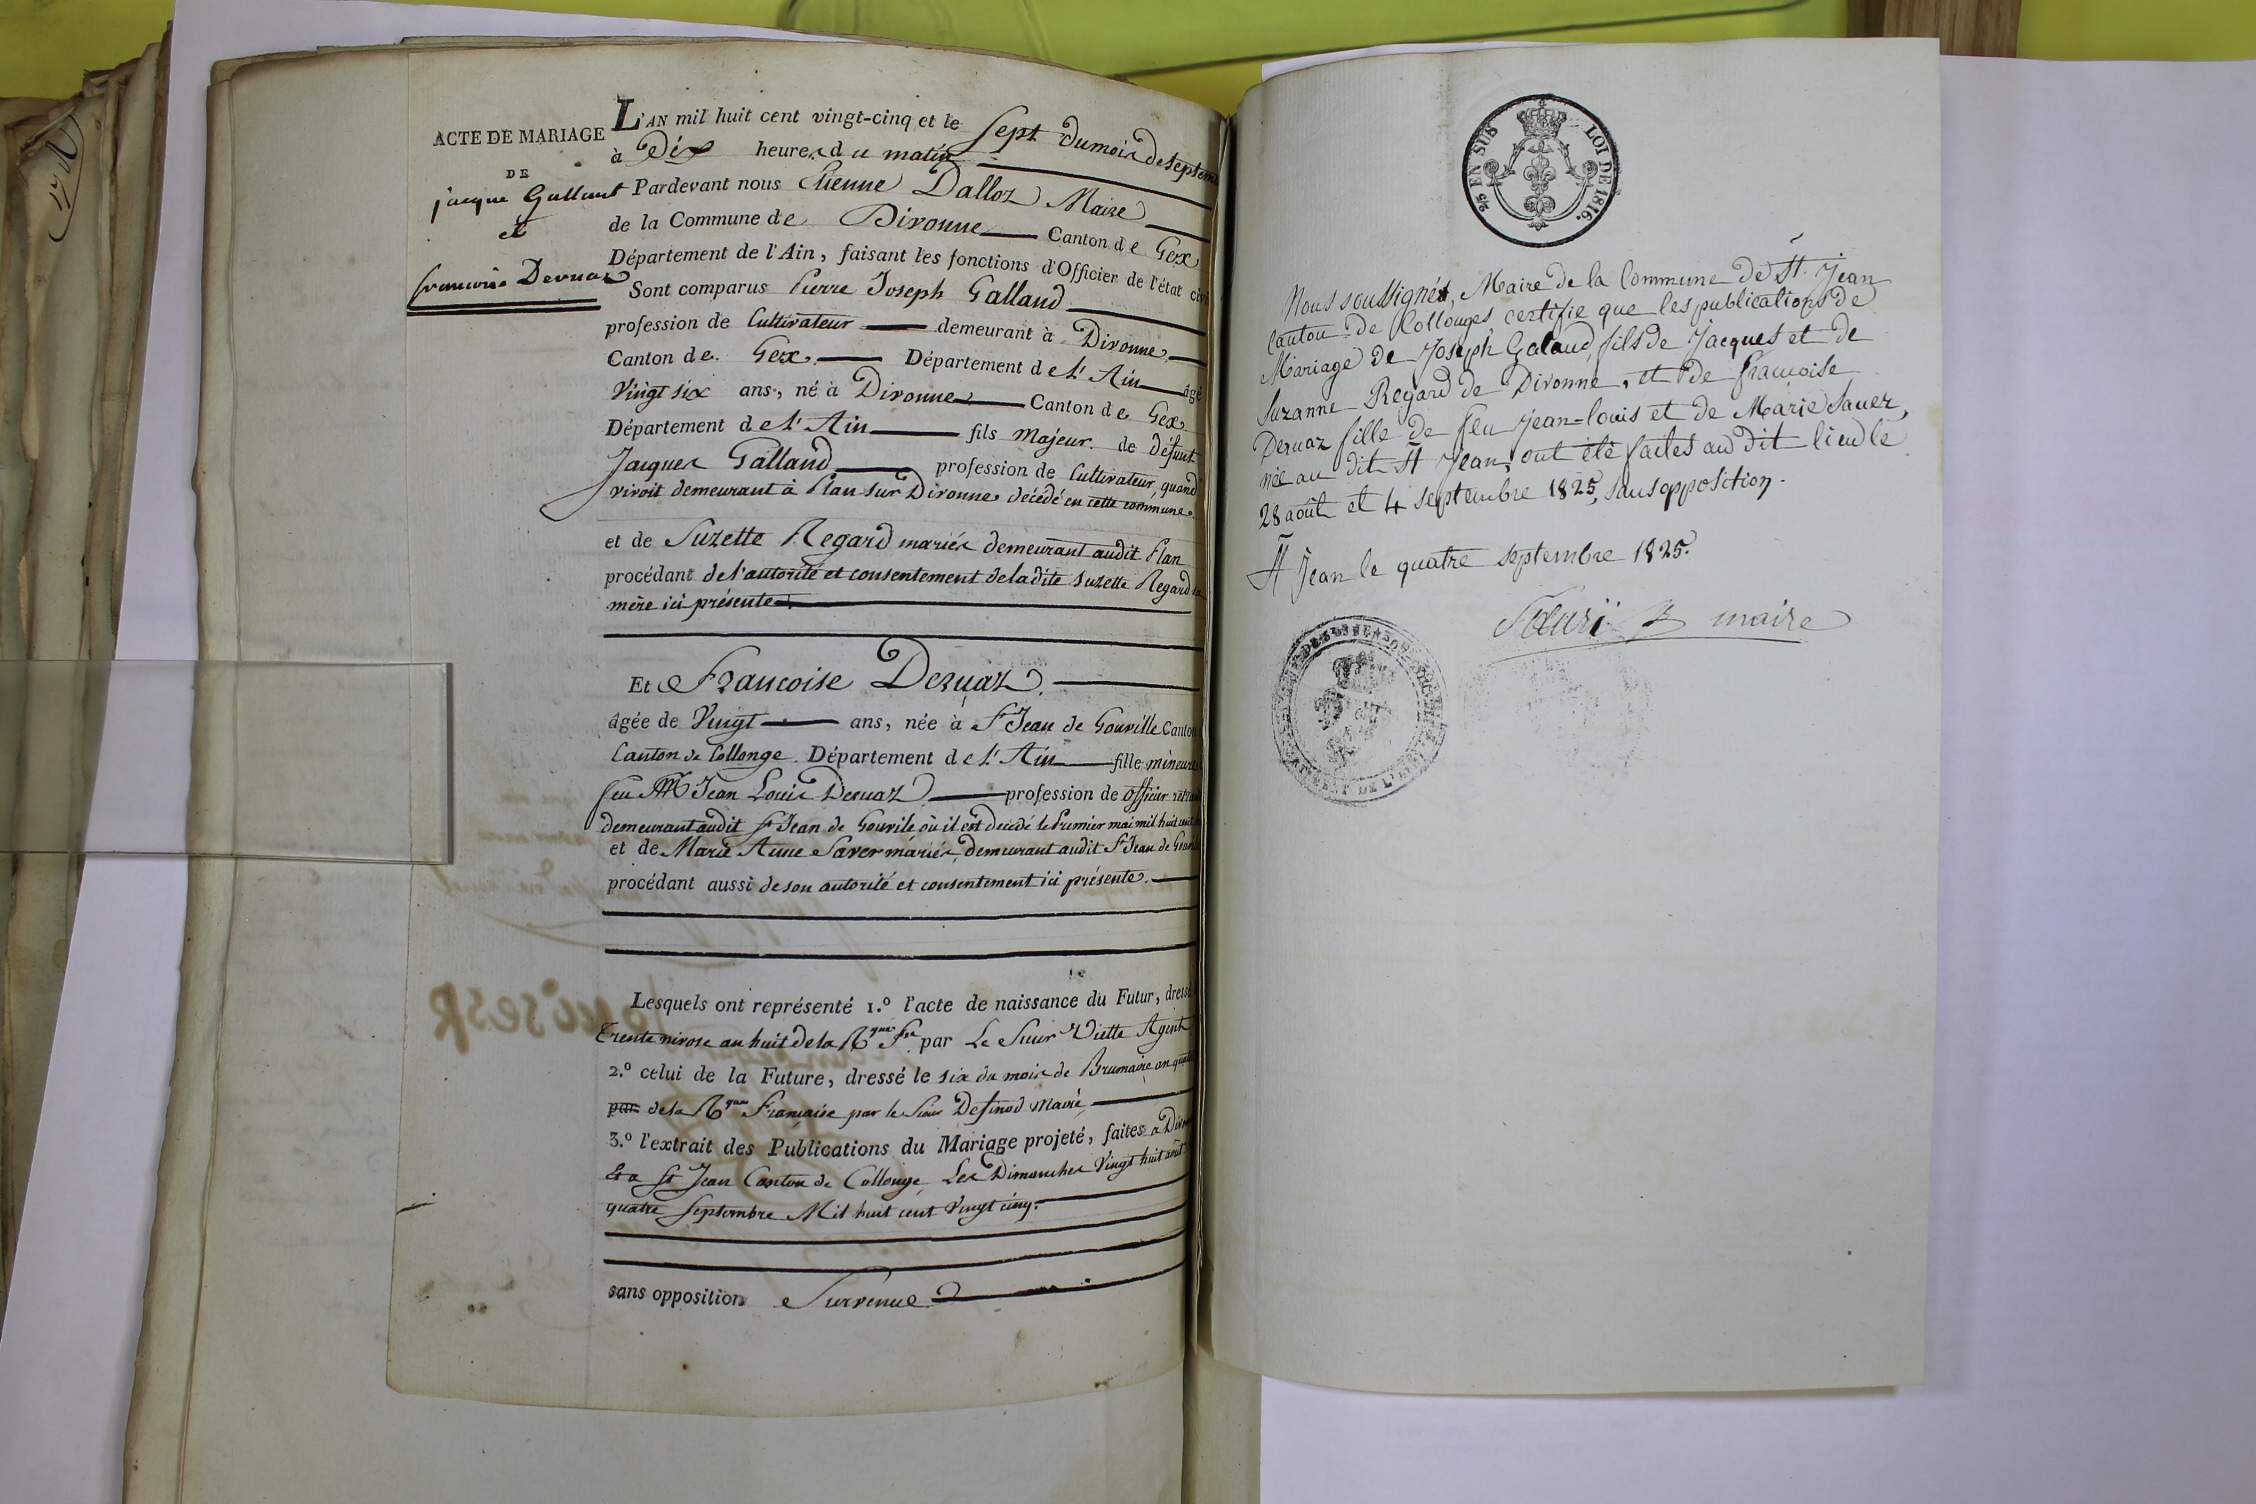 ACTE DE MARIAGE
DE
jacque Galland
et
francoise Deruaz
L'AN mil huit cent vingt-cinq et le Sept du mois de septem
à Dix heures du matin
Pardevant nous Etienne Dalloz Maire
de la Commune de Divonne Canton de Gex
Département de l'Ain, faisant les fonctions d'Officier de l'état civi
Sont comparus Pierre Joseph Galland
profession de Cultivateur demeurant à Divonne
Canton de Gex Département de L'Ain âgé
Vingt six ans, né à Divonne Canton de Gex
Département de L'Ain fils Majeur de défunt
Jacques Galland profession de Cultivateur, quand
vivoit demeurant à Plan sur Divonne décédé en cette commune
et de Suzette Regard mariés demeurant audit Plan
procédant de l'autorité et consentement de ladite Suzette Regard sa
mère ici présente
Et Francoise Deruaz
âgée de Vingt ans, née à St Jean de Gouville Canton
Canton de Collonge Département de L'Ain fille mineure
feu Jean Louis Deruaz profession de Officier retrai
demeurant audit St Jean de Gouvile où il est décédé le Premier mai mil huit cent
et de Marie Anne Saver mariés, demeurant audit St Jean de Gouvi
procédant aussi de son autorité et consentement ici présente.
Lesquels ont représenté 1.º l'acte de naissance du Futur, dressé
Trente nivose an huit de la Rque fse par Le Sieur Viette Agent
2.º celui de la Future, dressé le six du mois de Brumaire an
par de la Rque Francaise par le Sieur Definod Maire
3.º l'extrait des Publications du Mariage projeté, faites a Divon
Et a St Jean Canton de Collonge Les Dimanches Vingt huit août
quatre Septembre Mil huit cent Vingt cinq.
sans opposition Survenue
25 EN SUS LOI DE 1816.
Nous soussigné, Maire de la Commune de St. Jean
Canton de Collonges certifie que les publications de
Mariage de Joseph Galaud, fils de Jacques et de
Suzanne Regard de Divonne, et de françoise
Deruaz fille de feu Jean-louis et de Marie Sauer,
née au dit St Jean, ont été faites au dit lieu le
28 août et 4 septembre 1825, sans opposition.
St Jean le quatre septembre 1825.
maire